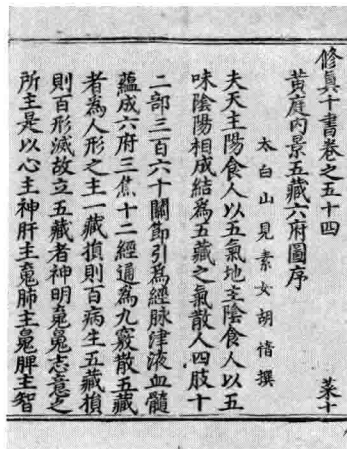 修真十書卷之五十四　菜十
黃庭內景五藏六府圖序
太白山見素女胡愔撰
夫天主陽食人以五氣地主陰食人以五
味陰陽相成結為五藏之氣散人四肢十
二部三百六十關節引為經脉津液血髓
蘊成六府三焦十二經通為九竅散五藏
者為人形之主一藏損則百病生五藏損
則百形滅故立五藏者神明魂魄志意之
所主是以心主神肝主魂肺主魄脾主智